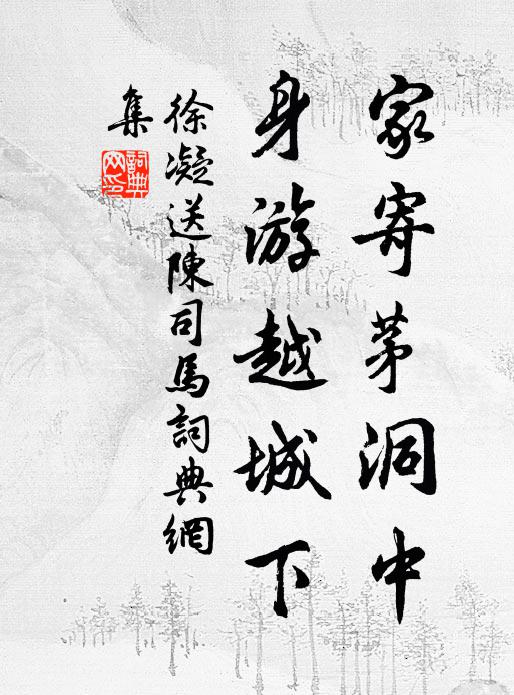 家寄茅洞中
身游越城下
徐凝送陳司馬詞典網
集
詞典網印